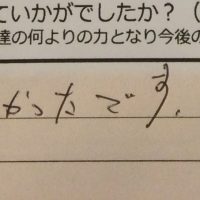 ていかがでしたか？（
達の何よりの力となり今後の
かったです。